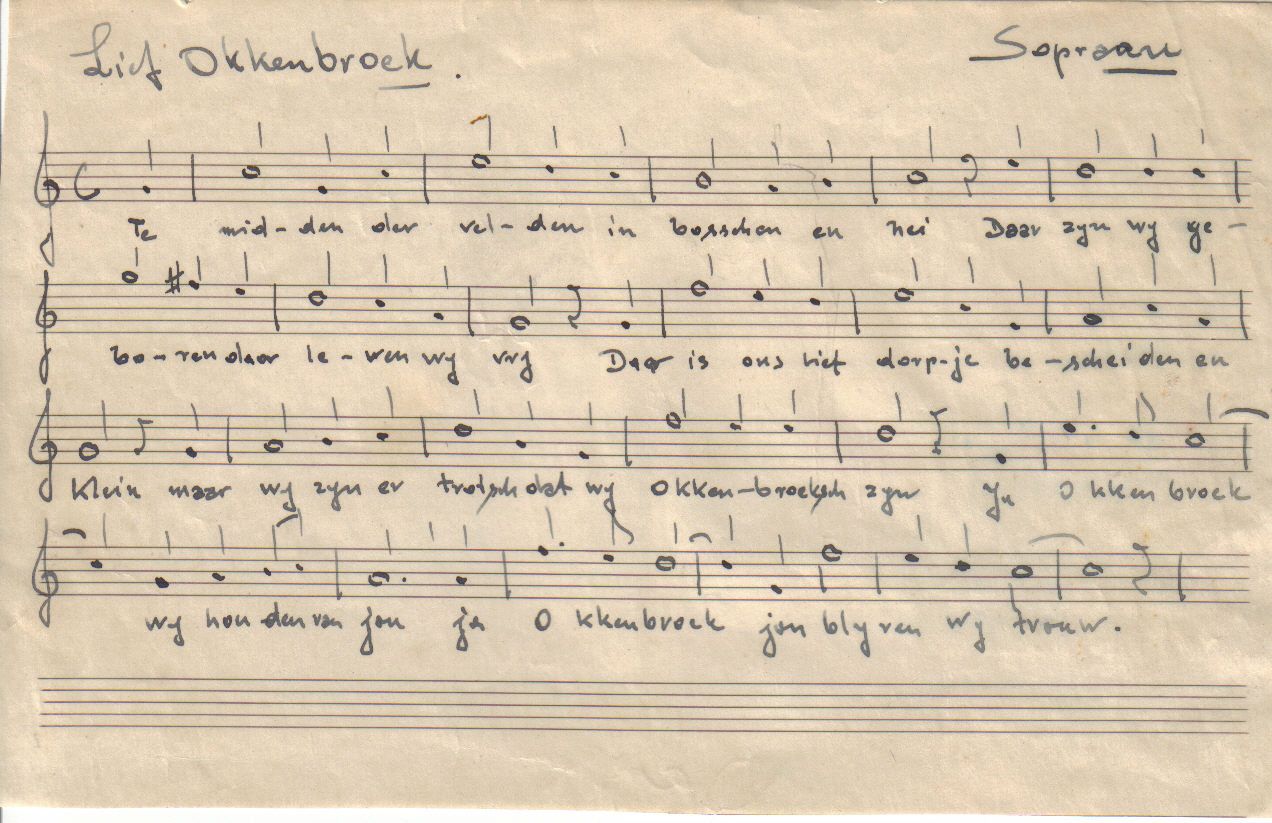 Lief Okkenbroek. Sopraan
Te mid-den der vel-den in bosschen en hei Daar zyn wy ge-
bo-ren daar le-ven wy vry Daar is ons lief dorp-je be-scheiden en
Klein maar wy zyn er trotsch dat wy Okken-broeksch zyn Ja Okkenbroek
wy houden van jou ja Okkenbroek jou blyven wy trouw.